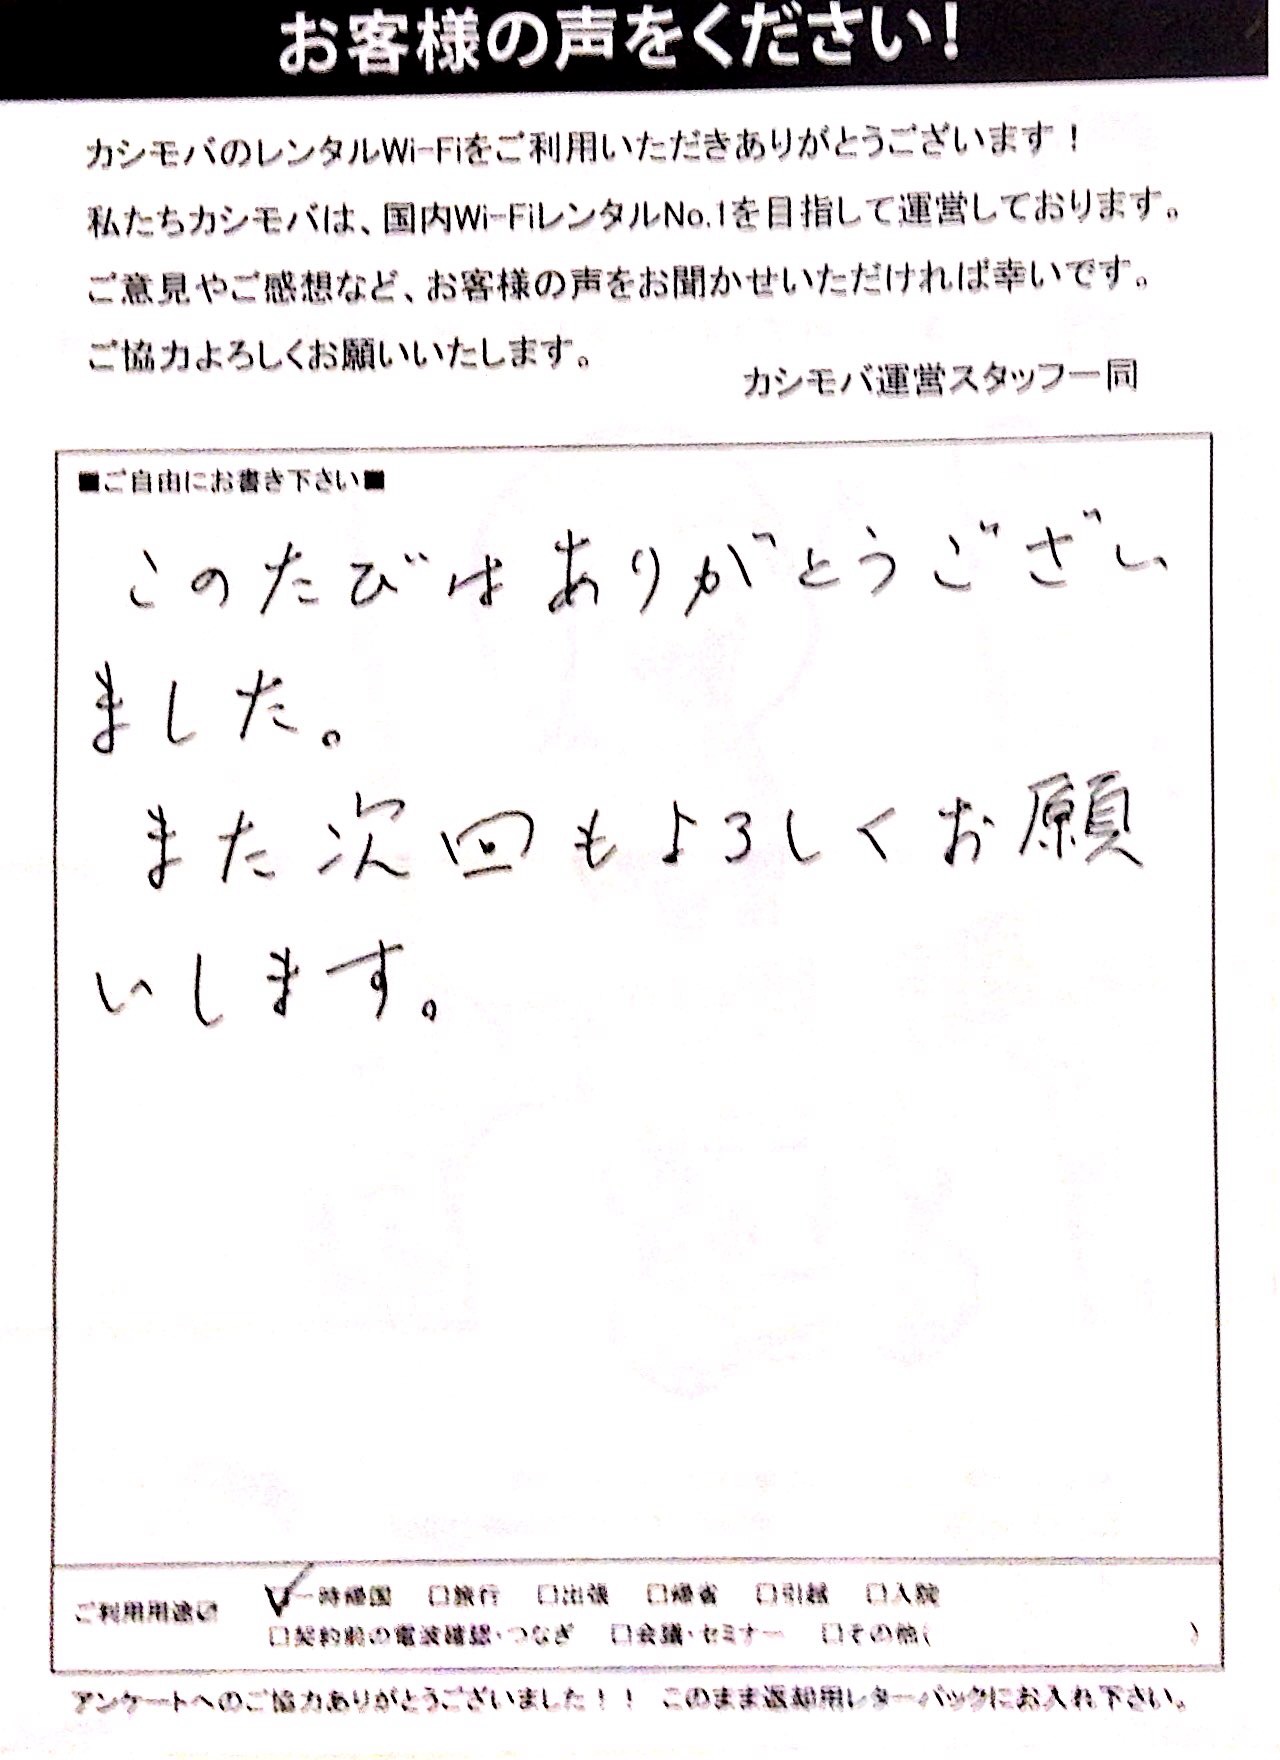 お客様の声をください!
カシモバのレンタルWi-Fiをご利用いただきありがとうございます！
私たちカシモバは、国内Wi-FiレンタルNo.1を目指して運営しております。
ご意見やご感想など、お客様の声をお聞かせいただければ幸いです。
ご協力よろしくお願いいたします。
カシモバ運営スタッフ一同
■ご自由にお書き下さい■
このたびはありがとうござい
ました。
また次回もよろしくお願
いします。
ご利用用途☑ ☑一時帰国 □旅行 □出張 □帰省 □引越 □入院
□契約前の電波確認・つなぎ □会議・セミナー □その他( )
アンケートへのご協力ありがとうございました！！ このまま返却用レターパックにお入れ下さい。